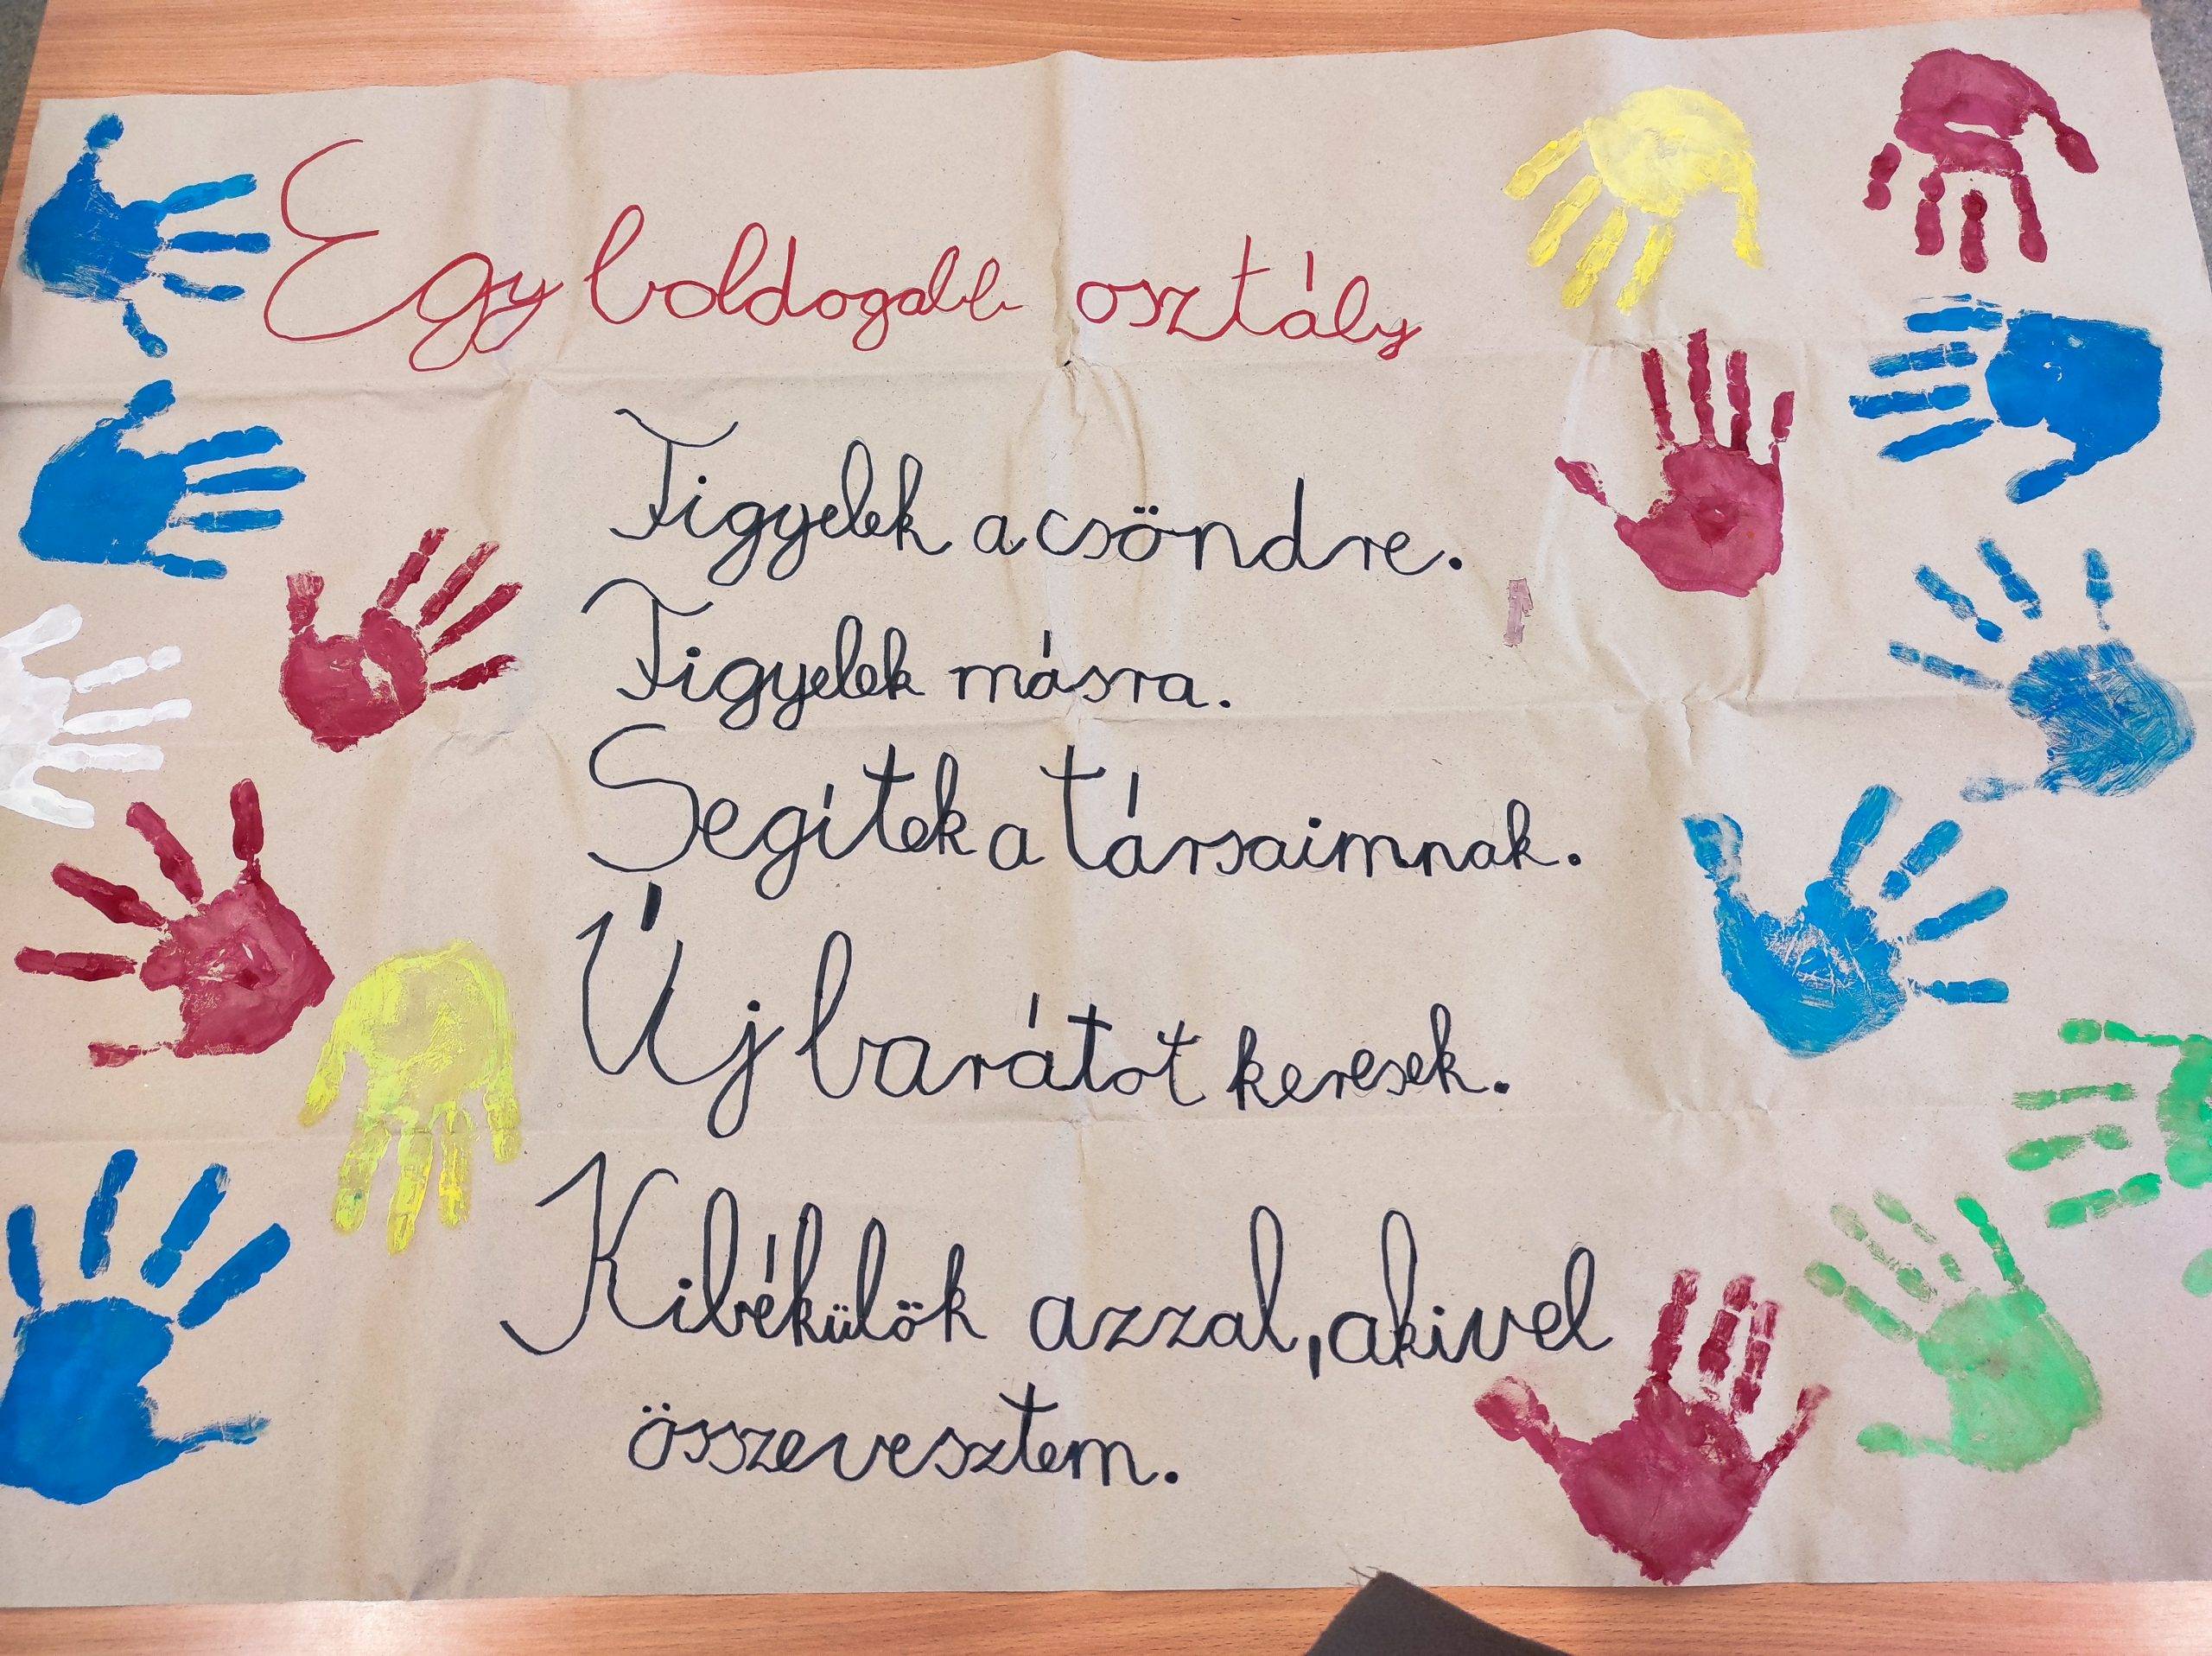 Egy boldogabb osztály
Figyelek a csöndre.
Figyelek másra.
Segítek a társaimnak.
Új barátot keresek.
Kibékülök azzal, akivel
összevesztem.